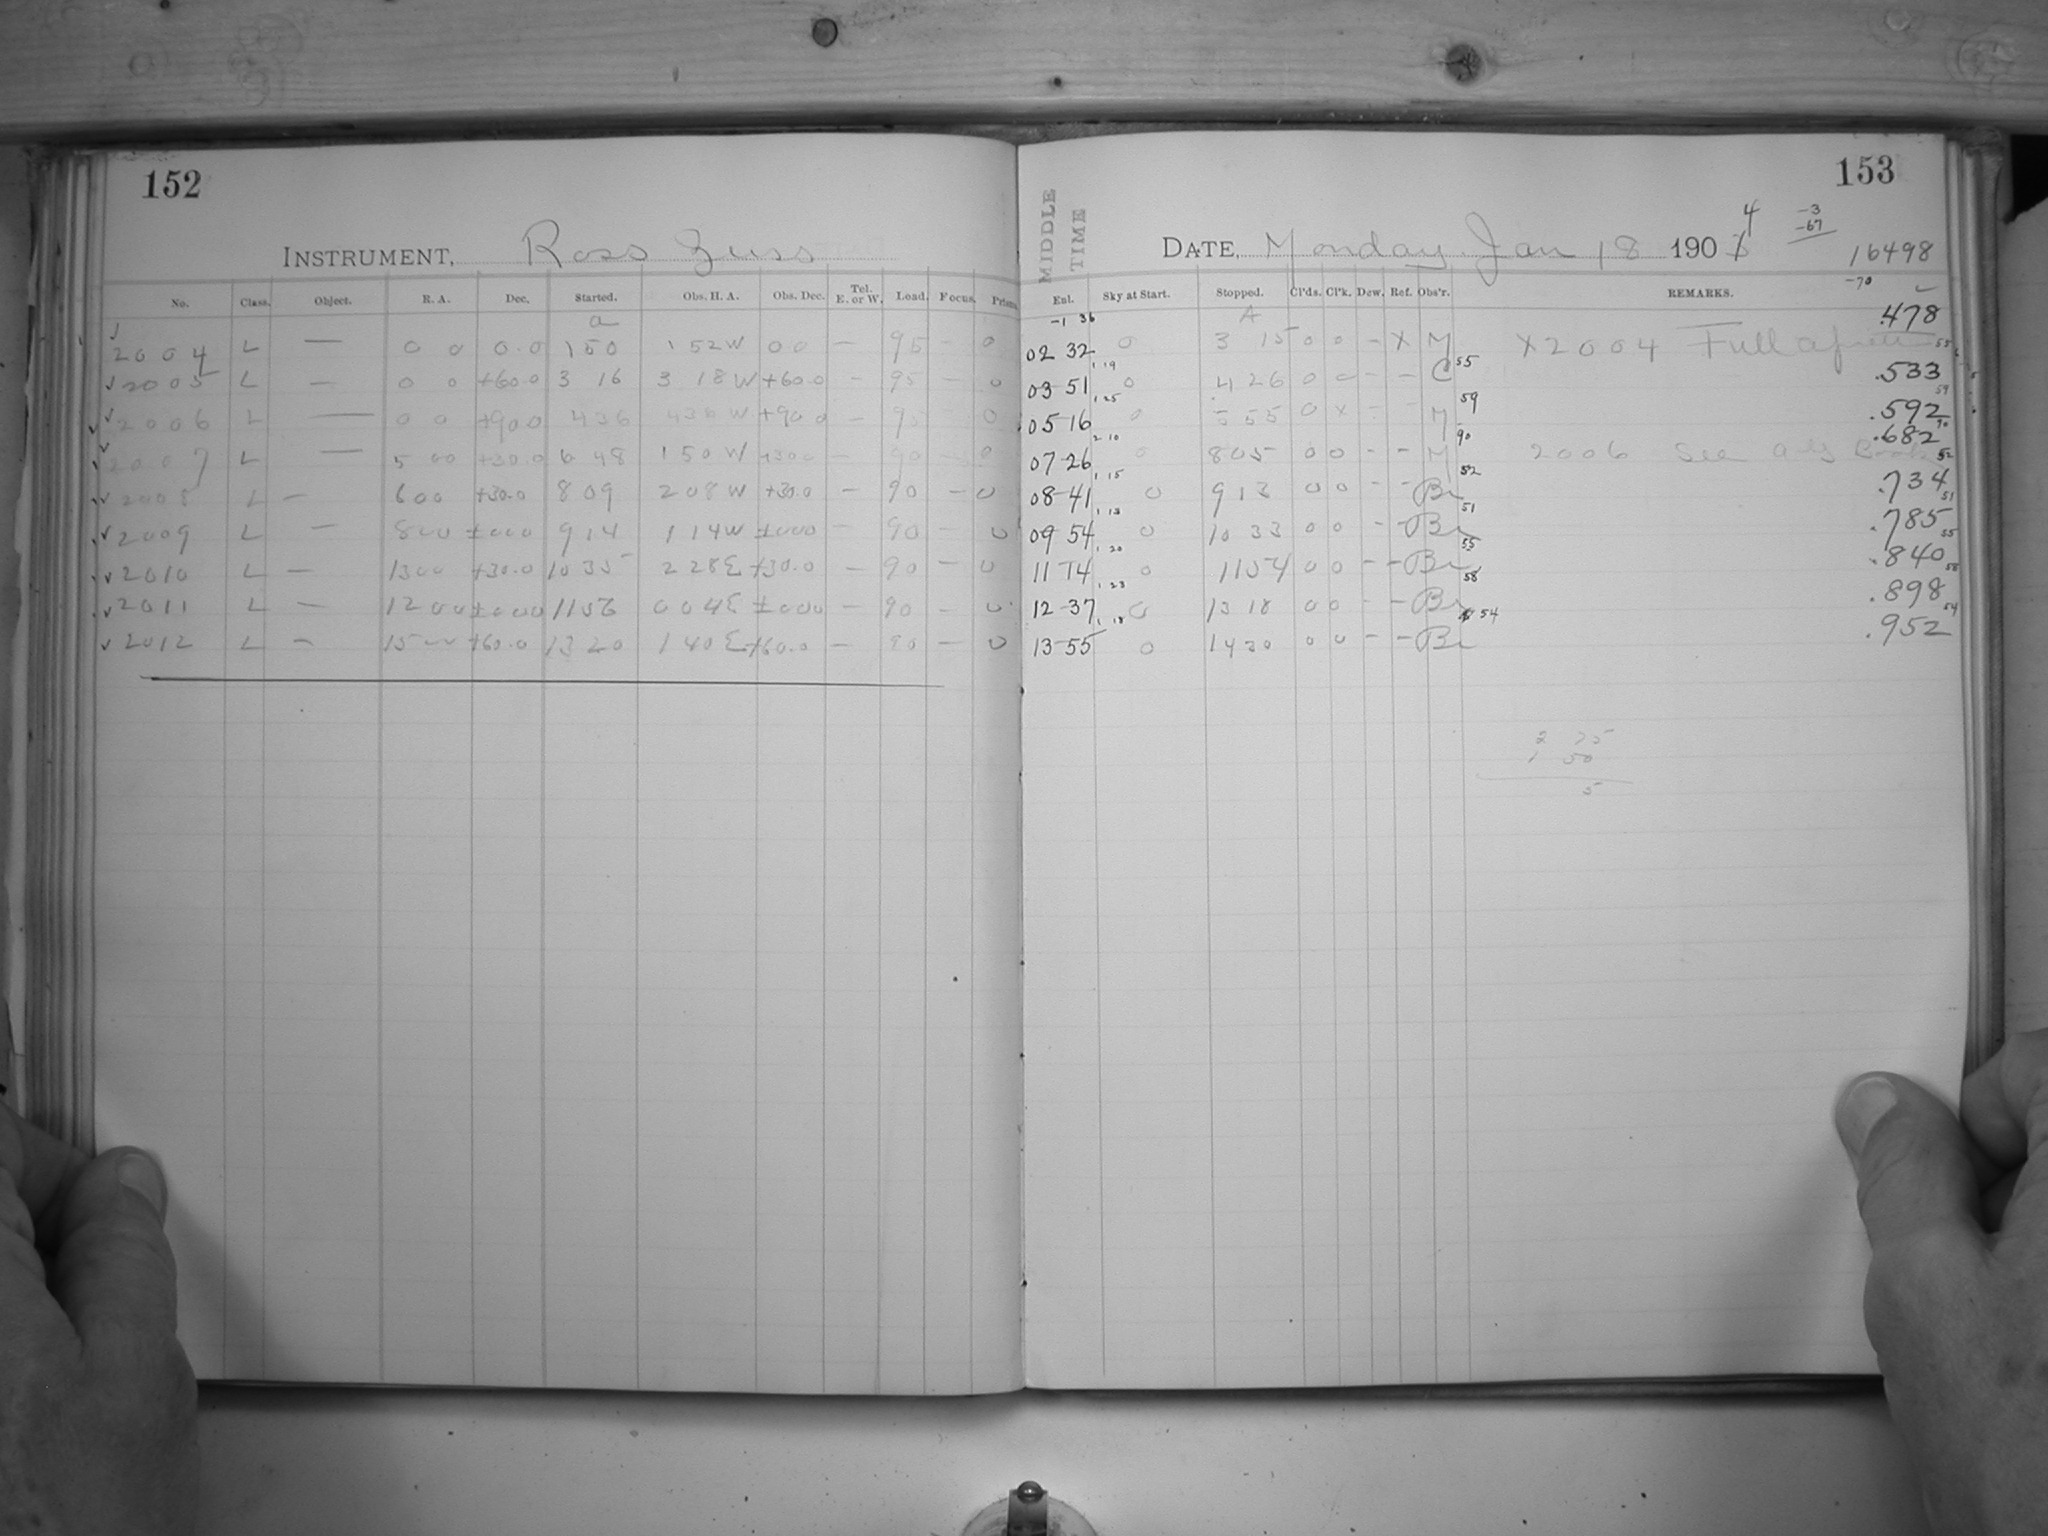 152
INSTRUMENT, Ross Zeiss
No. Class. Object. R. A. Dec. Started. Obs. H. A. Obs. Dec. Tel. E. or W. Load. Focus. Prism.
a
2004 L — 0 0 0.0 1 50 1 52 W 0 0 — 95 — 0
2005 L — 0 0 +60.0 3 16 3 18 W +60.0 — 95 — 0
2006 L — 0 0 +90.0 4 36 4 36 W +90.0 — 95 0
2007 L — 5 00 +30.0 6 48 1 50 W +30.0 — 90 0
2008 L — 6 00 +30.0 8 09 2 08 W +30.0 — 90 — 0
2009 L — 8 00 ±000 9 14 1 14 W ±000 — 90 — 0
2010 L — 13 00 +30.0 10 35 2 28 E +30.0 — 90 — 0
2011 L — 12 00 ±000 11 56 0 04 E ±000 — 90 — 0
2012 L — 15 00 +60.0 13 20 1 40 E +60.0 — 90 — 0
153
MIDDLE TIME
DATE, Monday Jan 18 190 4
-3
-67
16498
-70
Enl. Sky at Start. Stopped. Cl'ds. Cl'k. Dew. Ref. Obs'r. REMARKS.
-1 36 A .478
02 32 0 3 15 0 0 - X M X 2004 Full 55
1 19 55
03 51 0 4 26 0 0 - - C .533
1 25 59 59
05 16 0 5 55 0 X - - M .592
2 10 90 90
07 26 0 8 05 0 0 - - M 2006 See .682
1 15 52 52
08 41 0 9 13 0 0 - - Br .734
1 13 51 51
09 54 0 10 33 0 0 - - Br .785
1 20 55 55
11 14 0 11 54 0 0 - - Br .840
1 23 58 58
12 37 0 13 18 0 0 - - Br .898
1 18 54 54
13 55 0 14 30 0 0 - - Br .952
2 75
1 50
5